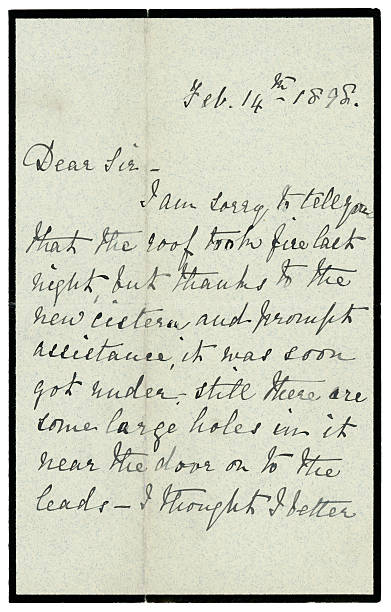 Feb. 14th 1898.
Dear Sir –
I am sorry to tell you
that the roof took fire last
night, but thanks to the
new cistern and prompt
assistance, it was soon
got under, still there are
some large holes in it
near the door on to the
leads – I thought I better